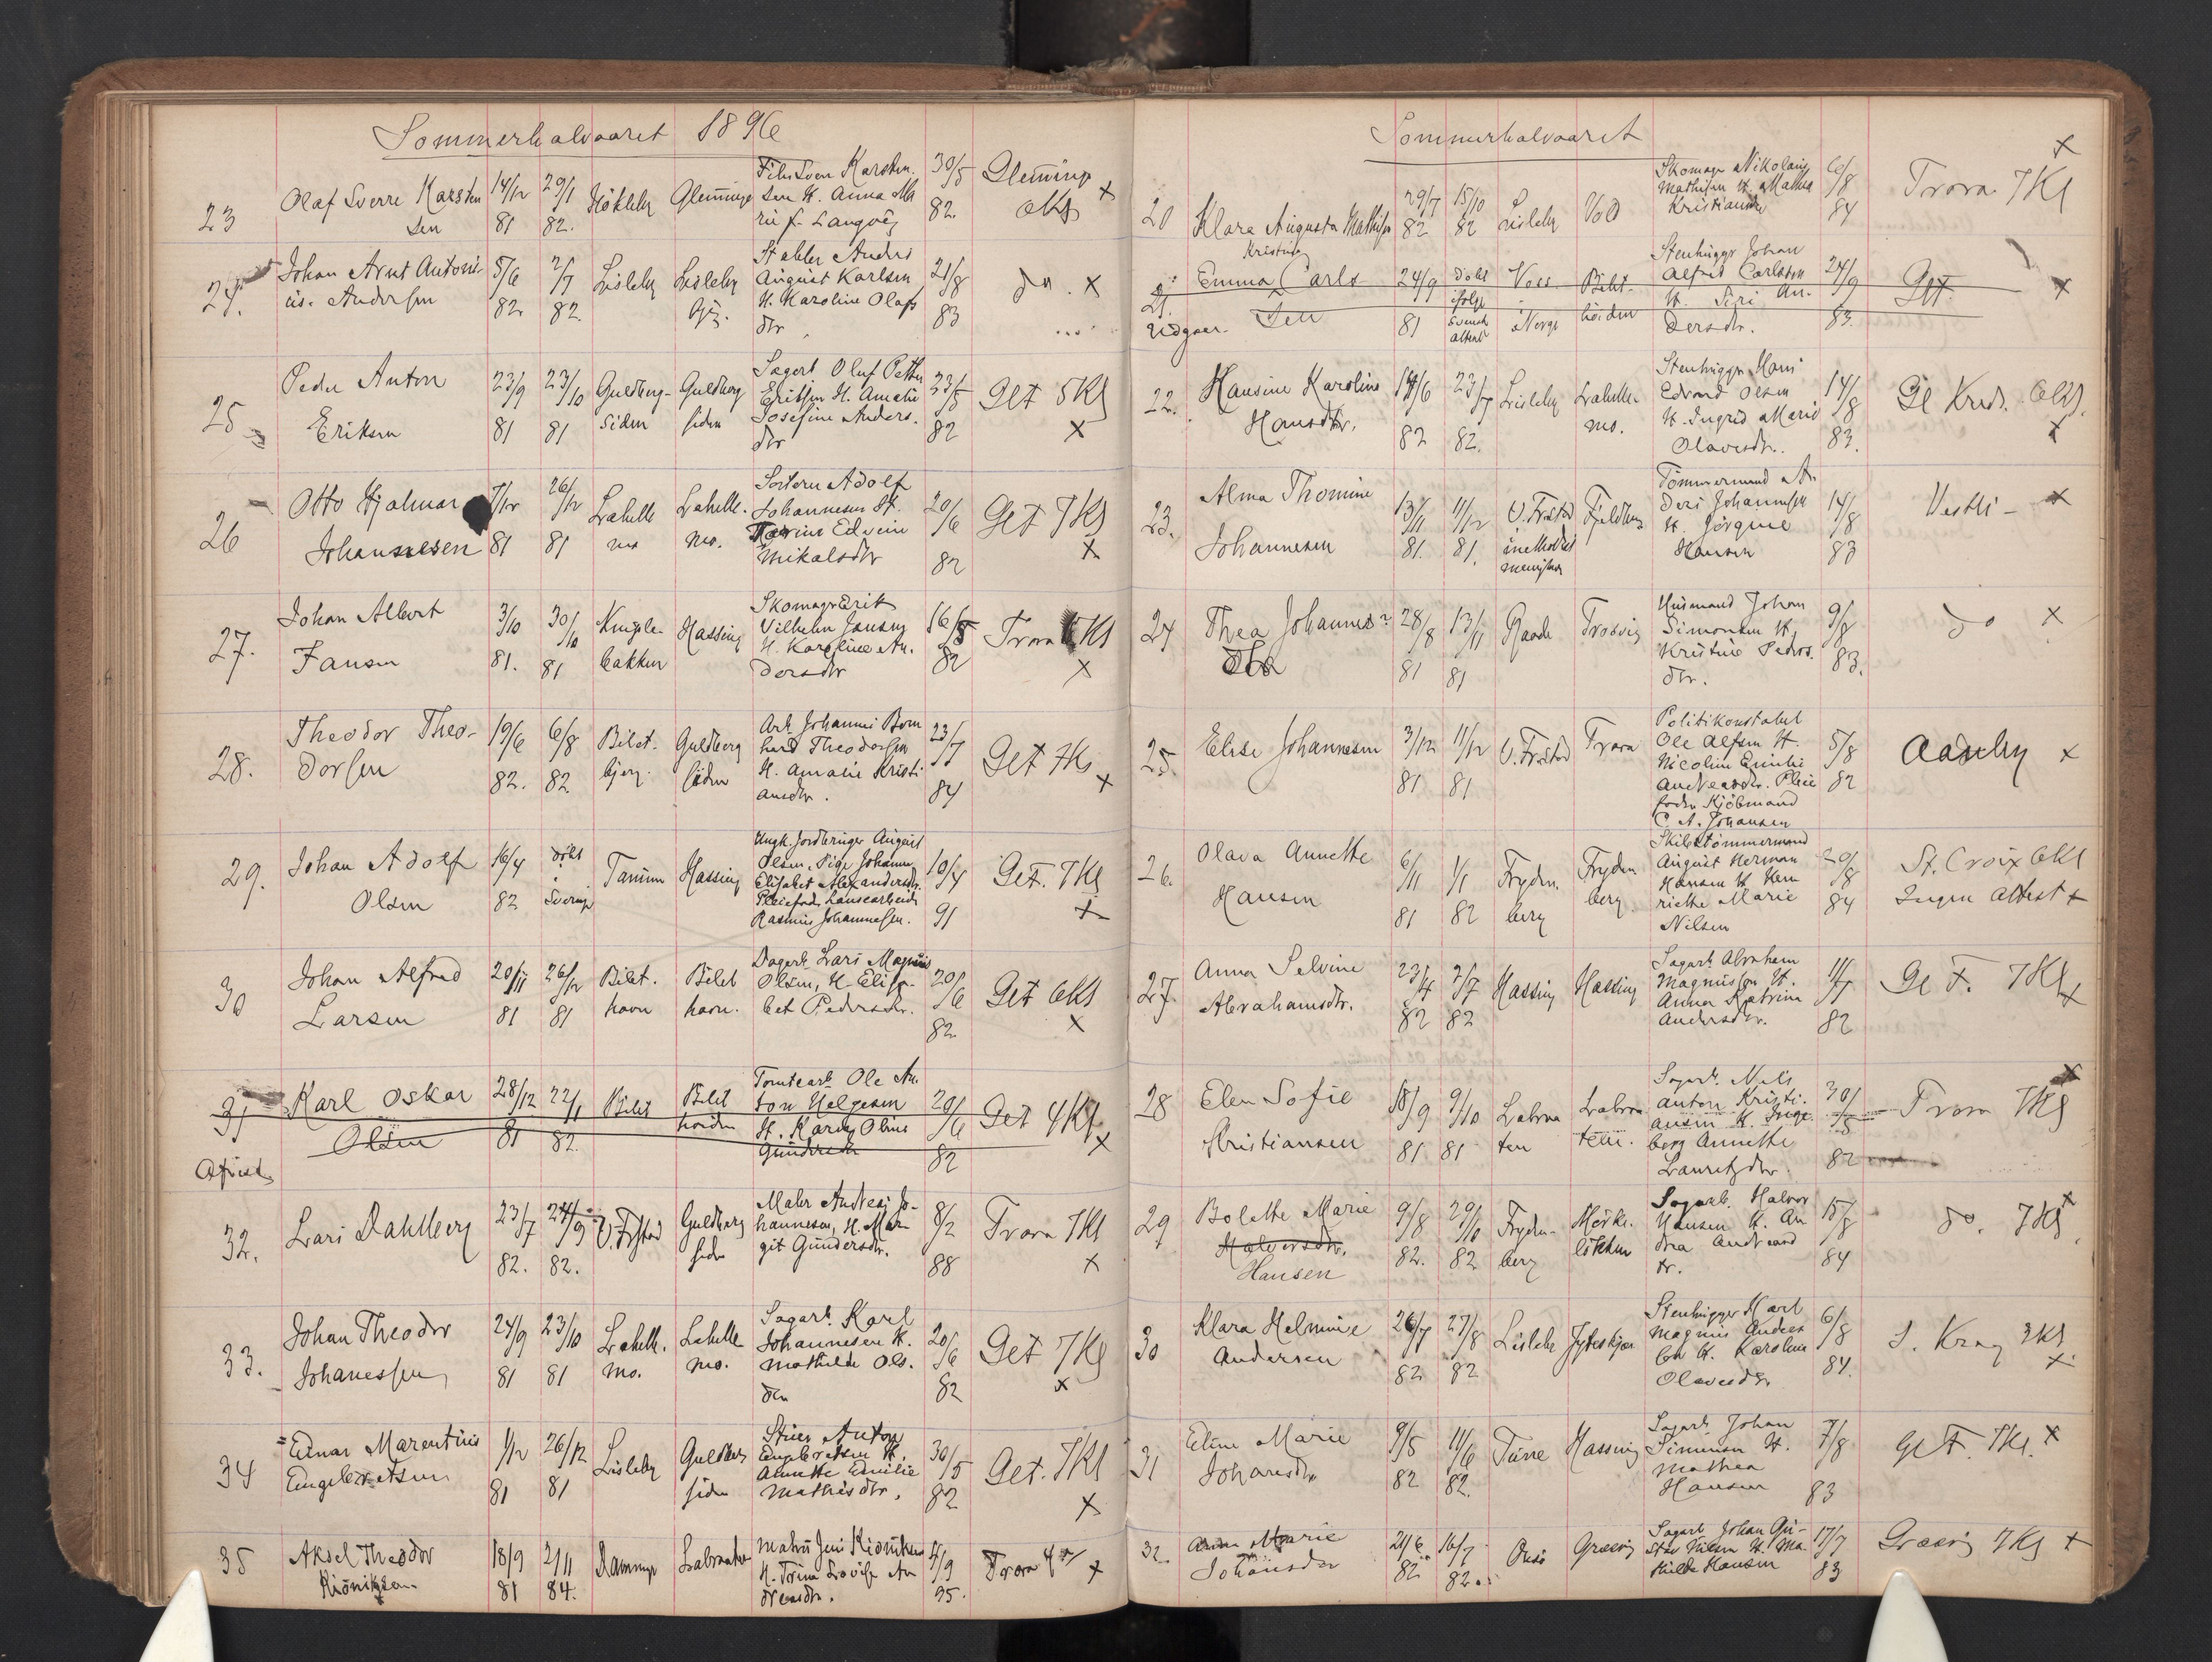 Sommerhalvaaret 1896
23
Olaf Sverre Karsten
sen
14/12
81
29/1
82.
Glemminge
Karsten.
sen H. Anna Ma
rie f. Langvig
30/5
82.
Glemminge
6Kl ×
24.
Johan Arnt Antoni-
us. Andersen
5/6
82
2/7
82.
Lisleby
Lisleby
Stabler Anders
August Karlsen
H. Karoline Olafs
dtr
21/8
83
do. ×
25
Peder Anton
Eriksen
23/9
81
23/10
81
Guldberg-
siden
Guldberg
siden
Sagarb Oluf Petter
Eriksen H. Amalie
Josefine Anders.
dtr
23/5
82
Get 5Kl
×
26
Otto Hjalmar
Johannesen
7/12
81
26/12
81
Lahelle
mo
Lahelle.
mo.
Adolf
Johannesen H.
Edvine
Mikalsdtr
20/6
82
Get 7Kl
×
27.
Johan Albert
Jansen
3/10
81.
30/10
81
bakken
Hassing
Skomagr Erik
Vilhelm Jansen
H. Karoline An.
dersdtr
16/5
82
Trara Kl
×
28.
Theodor Theo-
dorsen
19/6
82.
6/8
82.
Bilet.
bjerg.
Guldberg
siden
Arb. Johannes Bern
hard Theodorsen
H. Amalie Kristi
ansdtr.
23/7
84
Get 7Kl
×
29.
Johan Adolf
Olsen
16/4
82
døbt
i
Sverige
Tanum
Hassing
Ungk. Jordbruger August
Olsen, Pige Johanne
Elisabet Alexandersdtr.
Pleiefader Landsearbeider
Rasmus Johannessen.
10/4
91
Get. 7Kl
×
30
Johan Alfred
Larsen
20/11
81
26/12
81
Bilet.
havn
Bilet
havn.
Dagarb Lars Magnus
Olsen, H. Elisa-
bet Pedersdtr.
20/6
82
Get 6Kl
×
31
Afvist
Karl Oskar
Olsen
28/12
81
22/1
82.
Bilet
Bilet
høiden
Tomtearb. Ole An.
ton Helgesen
H. Karen Oline
Gundersdtr
20/6
82
Get 4Kl
×
32.
Lars Dahlberg
23/7
82.
24/9
82.
V. Frstad
Guldberg
siden
Maler Andreas Jo-
hannesen, H. Mar-
git Gundersdtr.
8/2
88
Trara 7Kl
×
33.
Johan Theodor
Johanessen
24/9
81
23/10
81
Lahelle.
mo.
Lahelle
mo.
Sagarb. Karl
Johannesen H.
Mathilde Ols.
dtr
20/6
82
Get 7Kl
×
34
Einar Marentius
Engebretsen
1/12
81
26/12
81
Lisleby
Guldberg
siden
Stuer Anton
Engebretsen H.
Annette Emilie
Mathisdtr.
30/5
82
Get. 7Kl
×
35
Aksel Theodor
Kiöniksen
18/9
81
2/11
84.
Dammyr
Labraaten
Matros Jens Kiöniksen
H. Trine Lovise An
dreasdtr.
4/9
95.
Trara
×
Sommerhalvaaret
20
Klara Augusta Mathisen
29/7
82
15/10
82
Lisleby
Vold
Skomagr Nikolaus
Mathisen H. Mathea
Kristiansdtr
6/8
84
Trara 7Kl
×
21.
Udgaar.
Kristine
Emma Carls-
sen
24/9
81
døbt
ifølge
svensk
attest
Voss
Norge
Bilet-
høiden
Stenhugger Johan
Alfred Carlsson
H. Siri An.
dersdtr.
24/9
83.
Get.
×
22.
Hansine Karoline
Hansdtr.
14/6
82
23/7
82.
Lisleby
Lahelle
mo.
Stenhugger Hans
Edvard Olsen
H. Ingrid Marie
Olavesdtr.
14/8
83.
Gl Kred. 6Kl.
×
23.
Alma Thomine
Johannesen
13/11
81.
11/12
81.
V. Frstad
Tömmermand An
ders Johannesen
H. Jörgine
Hansen
14/8
83
Vestli- ×
24
Thea Johannes=
dtr
28/8
81
13/11
81
Raade
Trosvig
Husmand Johan
Simonsen H.
Kristine Peders.
dtr.
9/8
83.
do ×
25.
Elise Johannesen
3/12
81
11/12
81
V. Frstad
Trara
Politikonstabel
Ole Alfsen H.
Nicoline Emilie
Andreasdtr. Pleie
fader Kjöbmand
C. A. Johansen
5/8
82
Aaseby ×
26.
Olava Annette
Hansen
6/11
81
1/1
82
Fryden.
berg
Fryden
berg
Skibstömmermand
August Herman
Hansen H. Hen
riette Marie
Nilsen
20/8
84
St. Croix 6Kl
Ingen attest ×
27.
Anna Selvine
Abrahamsdtr.
23/4
82
2/7
82
Hassing
Hassing
Sagarb. Abraham
Magnussen H.
Anna Katrine
Andersdtr.
11/7
82
Get. 7Kl
×
28
Elen Sofie
Kristiansen
18/9
81
9/10
81
Labraa
ten
Labraa
ten.
Sagarb. Nils
Anton Kristi.
ansen H. Inge
borg Annette
Lauritzdtr.
30/5
82
Trara 7Kl
×
29
Bolette Marie
Halvorsdtr.
Hansen
9/8
82.
29/10
82
Fryden-
berg
Mörke.
lökken
Sagarb. Halvor
Hansen H. An
drea Andreas
dr.
15/8
84
do. 7Kl ×
30
Klara Helmine
Andersen
26/7
82
27/8
82
Lisleby
Stenhugger Karl
Magnus Anders
sen H. Karoline
Olavesdtr
6/8
84.
S. Krag 3Kl
×
31
Eline Marie
Johansdtr
9/5
82
11/6
82.
Tune
Hassing
Sagarb. Johan
Simensen H.
Mathea
Hansen
7/8
83
Get. 7Kl. ×
32.
Anna Marie
Johansdtr
21/6
82
16/7
82.
Onsö
Græsvig
Sagarb Johan Gu-
stav Nilsen H. Ma-
thilde Hansen
17/7
83
Græsvig 7Kl ×